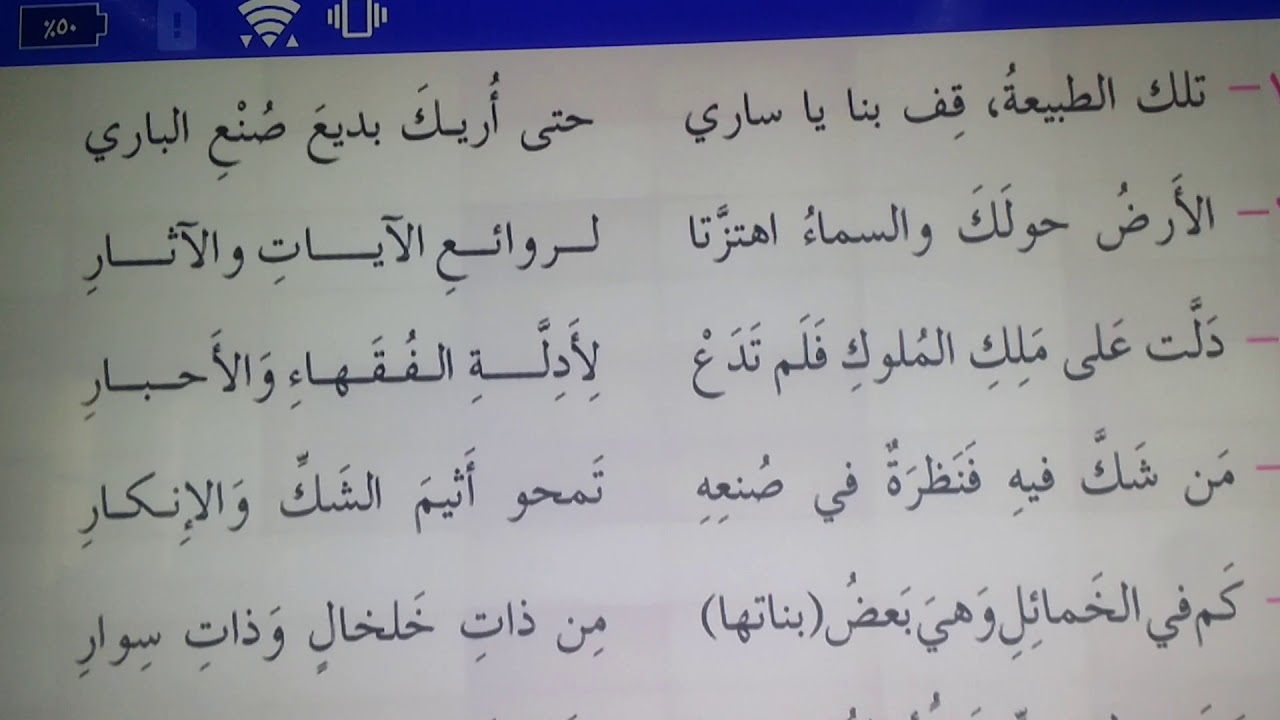 ٪٥٠
١- تلك الطبيعةُ، قِف بنا يا ساري حتى أُريـكَ بديعَ صُنْعِ الباري
- الأَرضُ حولَكَ والسماءُ اهتزَّتا لـروائـعِ الآيـاتِ والآثـارِ
- دَلَّت عَلى مَلِكِ المُلوكِ فَلَم تَدَعْ لِأَدِلَّـةِ الـفُـقَـهـاءِ وَالأَحـبـارِ
- مَن شَكَّ فيهِ فَنَظرَةٌ في صُنعِهِ تَمحو أَثيمَ الشَكِّ وَالإِنكـارِ
- كَم في الخَمائِلِ وَهيَ بَعضُ (بناتها) مِن ذاتِ خَلخالٍ وَذاتِ سِوارِ